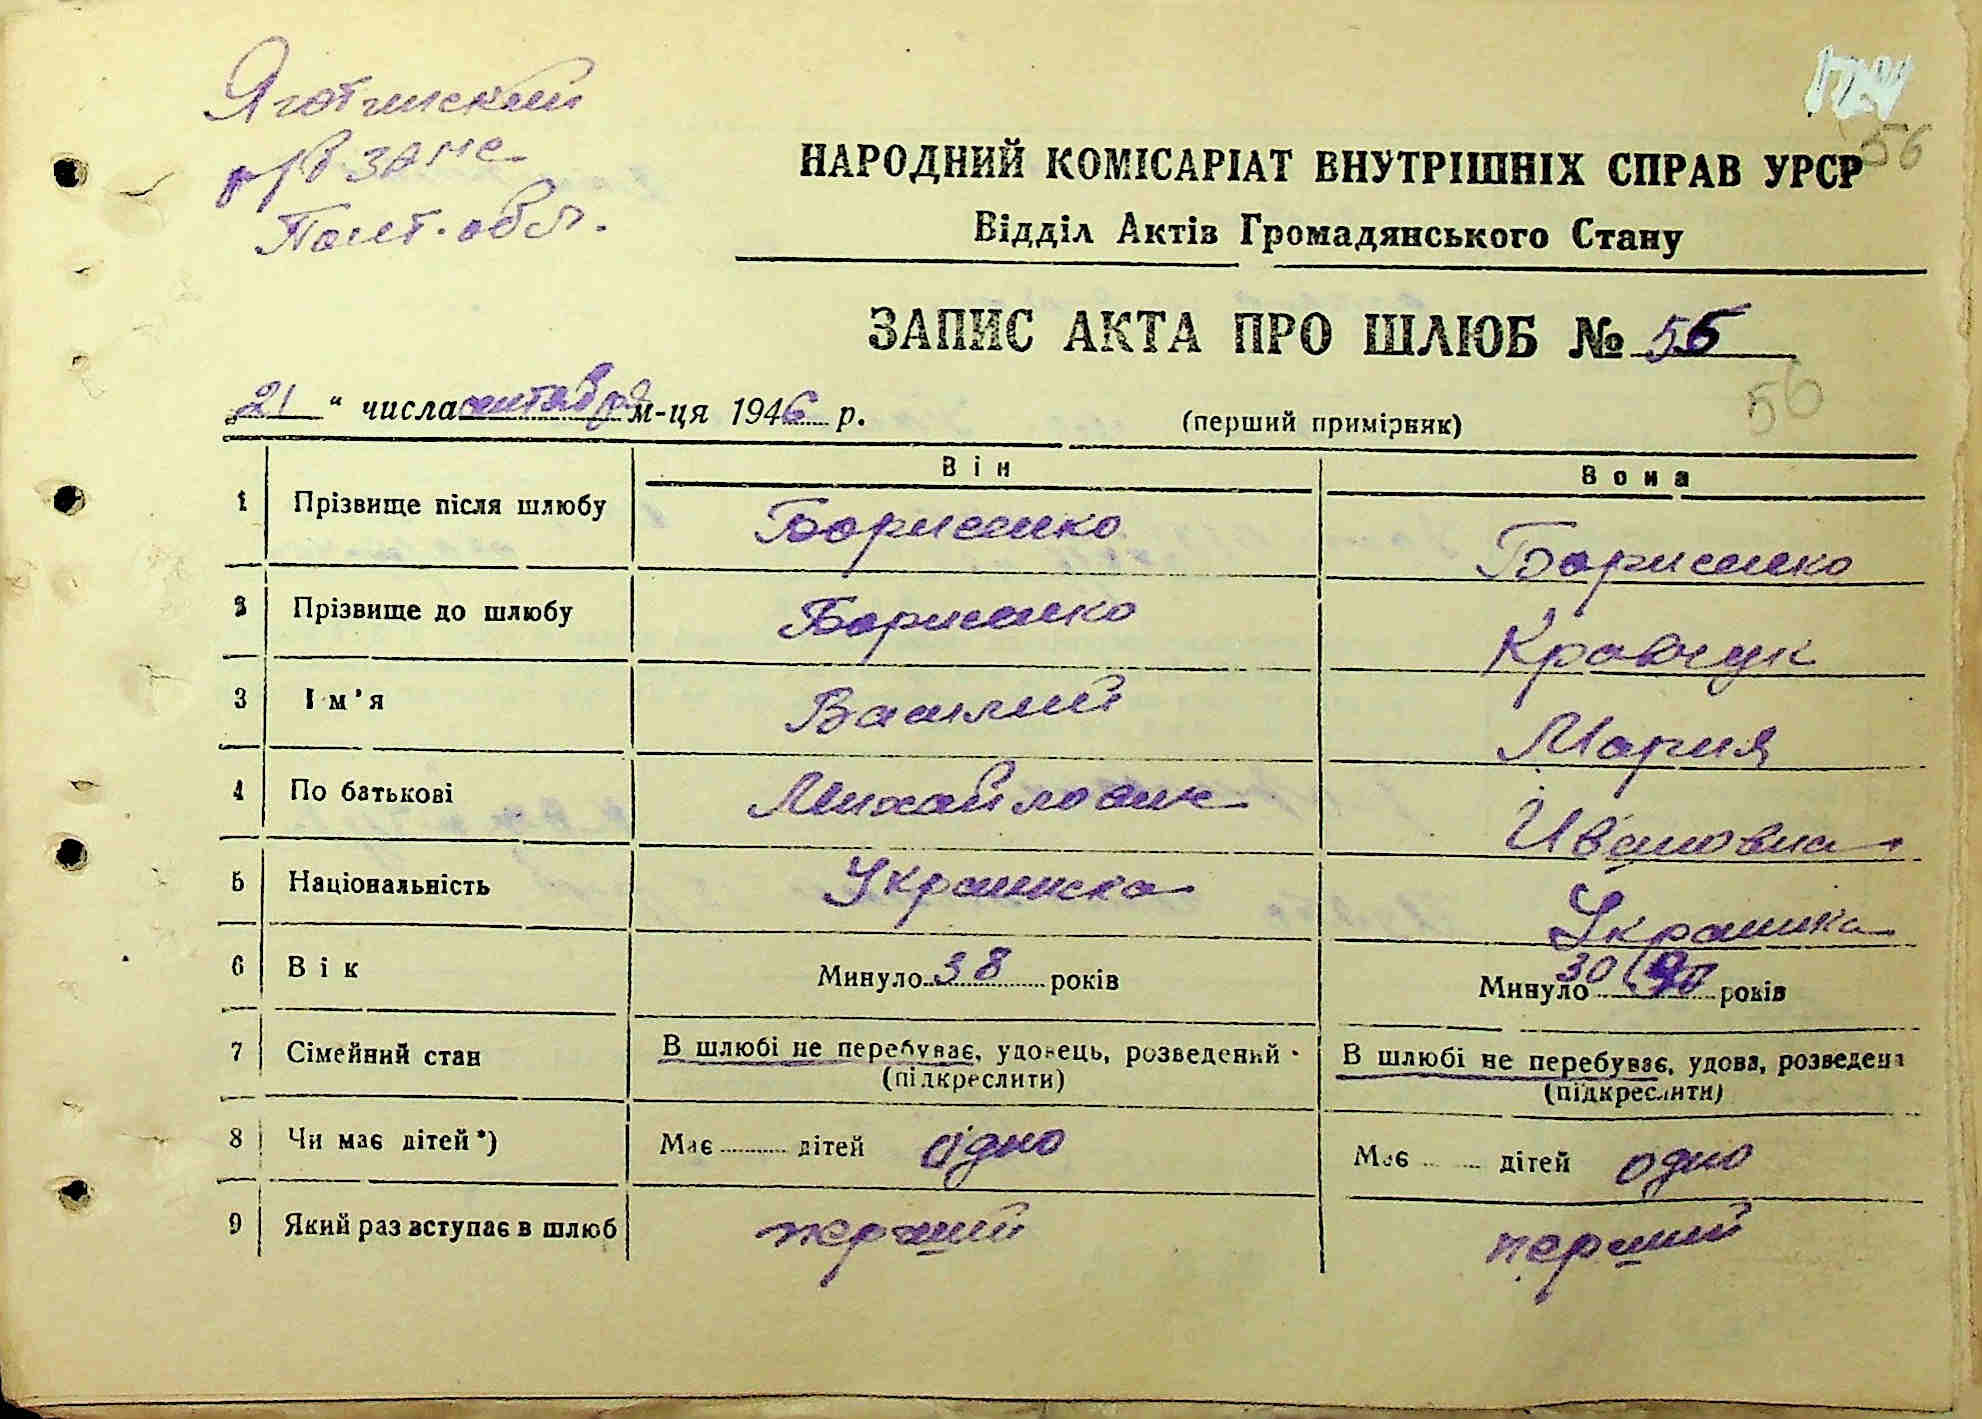 Яготинский
р/б ЗАГС
Полт. обл.
56
НАРОДНИЙ КОМІСАРІАТ ВНУТРІШНІХ СПРАВ УРСР
Відділ Актів Громадянського Стану
ЗАПИС АКТА ПРО ШЛЮБ № 56
„21“ числа сентября м-ця 1946 р.
(перший примірник)
56
Він
Вона
1 Прізвище після шлюбу Борисенко Борисенко
2 Прізвище до шлюбу Борисенко Кравчук
3 Ім'я Василий Мария
4 По батькові Михайлович Ивановна
5 Національність Украинска Украинка
6 Вік Минуло 38 років Минуло 30 років
7 Сімейний стан В шлюбі не перебуває, удовець, розведений (підкреслити) В шлюбі не перебуває, удова, розведена (підкреслити)
8 Чи має дітей*) Має дітей одно Має дітей одно
9 Який раз вступає в шлюб перший перший